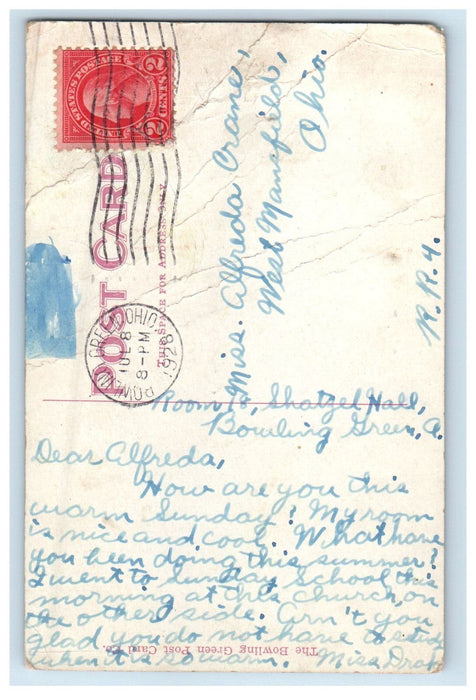 UNITED STATES POSTAGE
2 CENTS 2
POST CARD
THIS SPACE FOR ADDRESS ONLY
BOWLING GREEN OHIO
JUL 8
8-PM
1928
Miss. Alfreda Crane,
West Mansfield,
Ohio.
R.R.4.
Room 18, Shatzel Hall,
Bowling Green, O.
Dear Alfreda,
How are you this
warm Sunday? My room
is nice and cool. What have
you been doing this summer?
I went to Sunday School this
morning at this church, on
the other side. Arn't you
glad you do not have to study
when it is so warm. Miss Drak
The Bowling Green Post Card Co.